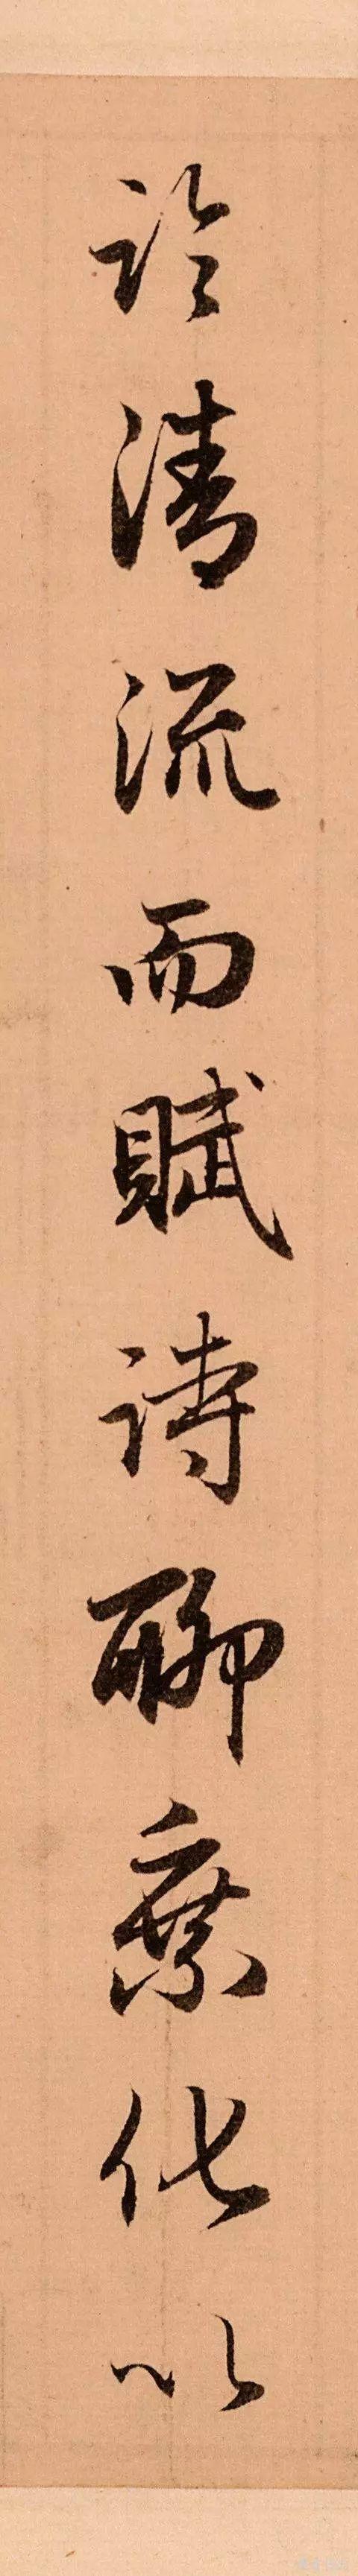 临清流而賦詩聊乘化以